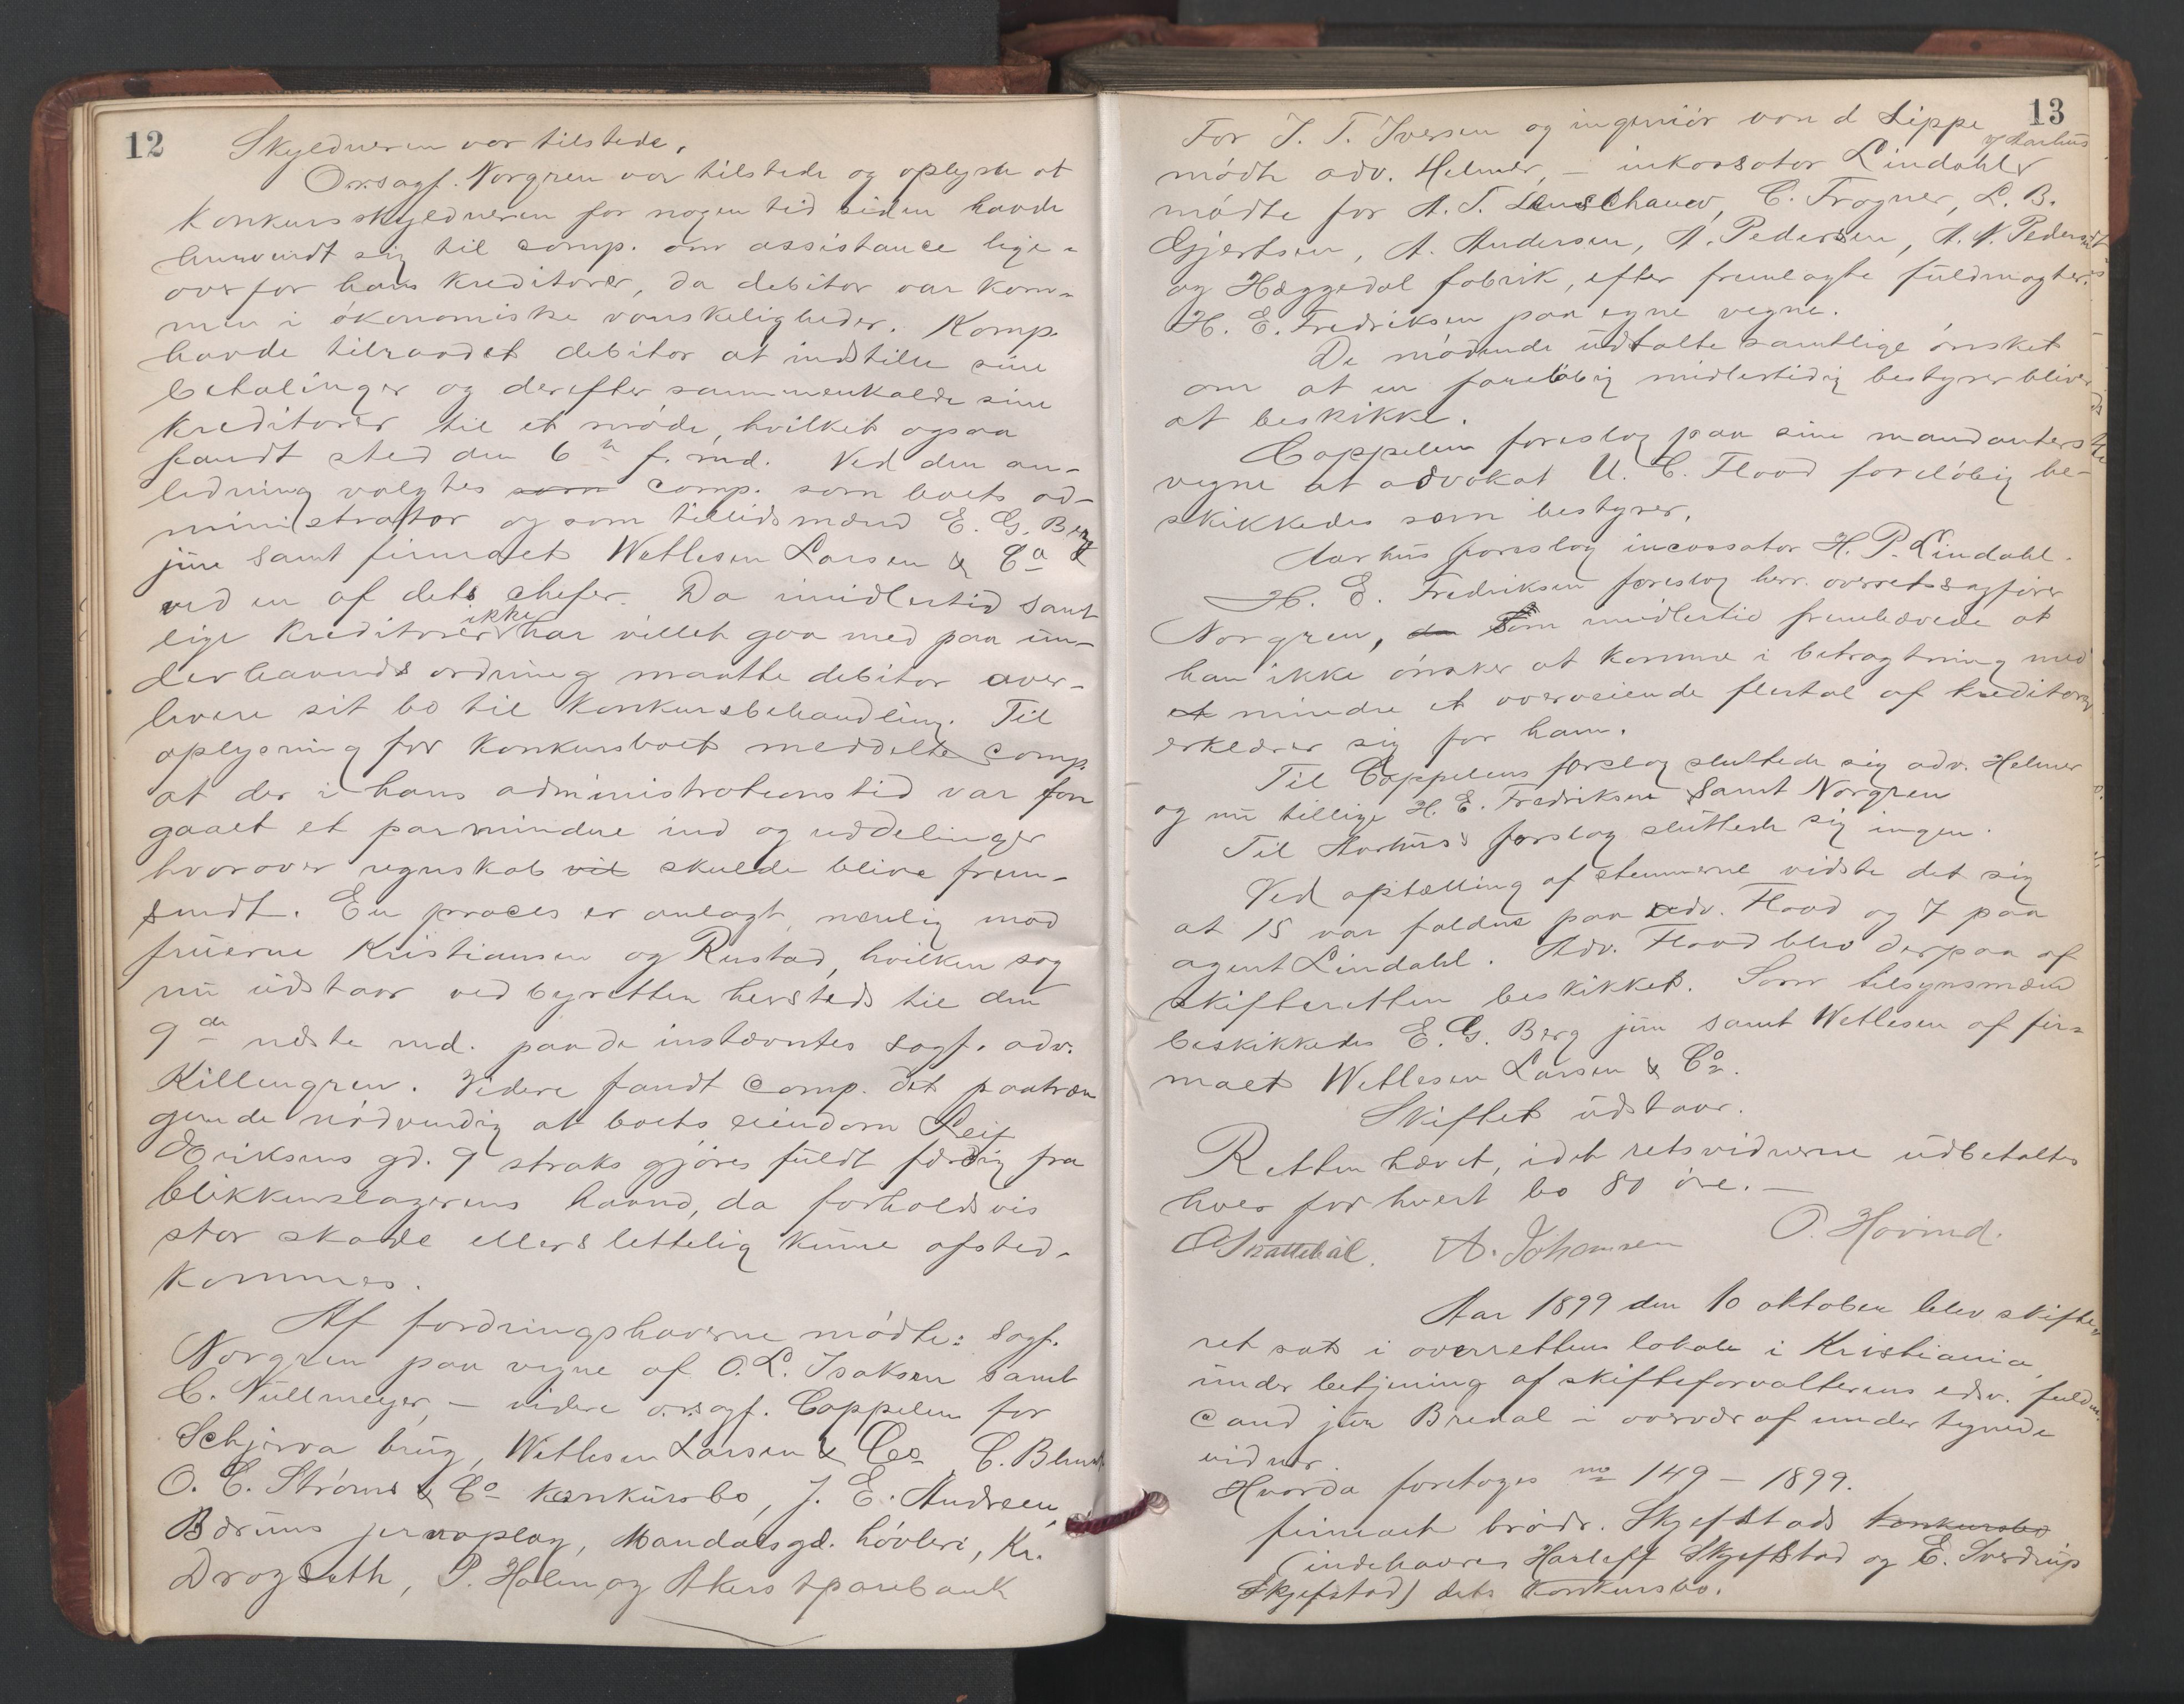 12
Skyldneren var tilstede.
Orsagf. Norgren var tilstede og oplyste at
Konkursskyldneren for nogen tid siden havde
henvendt sig til comp. om assistance lige-
overfor hans kreditorer, da debitor var kom-
men i økonomiske vanskeligheder. Komp.
havde tilraadet debitor at indstille sine
betalinger og derefter sammenkalde sine
kreditorer til et møde, hvilket ogsaa
fandt sted den 6te f. md. Ved den an-
ledning valgtes som comp. som boets ad-
ministrator og som tillidsmænd E. G. Berg
jun samt firmaet Wetlesen Larsen & Co
ved en af dets chefer. Da imidlertid samt
lige kreditorer ikke har villet gaa med paa un-
derhaands ordning maatte debitor over-
levere sit bo til konkursbehandling. Til
oplysning for konkursboet meddelte comp.
at der i hans administrationstid var fore
gaaet et par mindre ind og uddelinger
hvorover regnskab vil skulde blive frem-
sendt. En proces er anlagt, nemlig mod
fruerne Kristiansen og Rustad, hvilken sag
nu udstaar ved byretten hersteds til den
9de næste md. paa de instævntes sagf. adv.
Killengren. Videre fandt comp. det paatræn
gende nødvendig at boets eiendom Leif
Eriksens gd. 9 straks gjøres fuldt færdig fra
blikkenslagerens haand, da forholdsvis
stor skade ellers lettelig kunne afsted-
kommes.
Af fordringshaverne mødte: Sagf.
Norgren paa vegne af O. L. Isaksen samt
C. Nüllmeyer, – videre o.r.sagf. Cappelen for
Schjerva brug, Wetlesen Larsen & Co, C. Blunck
O. C. Strøms & Co konkursbo, J. E. Andreen,
Bærums jernoplag, Mandalsgd. høvleri, Kr.
Drogseth, P. Holm og Akers sparebank
13
For J. T. Iversen og ingeniør von d Lippe
mødte adv. Helmer, – inkassator Lindahl v/ Aarhus
mødte for A. T. Lenschauw, C. Frogner, L. B.
Gjertsen, A. Andersen, A. Pedersen, A. N. Pedersen
og Heggedal fabrik, efter fremlagte fuldmagter.
H. E. Fredriksen paa egne vegne.
De mødende udtalte samtlige ønsket
om at en foreløbig midlertidig bestyrer bliver
at beskikke.
Cappelen foreslog paa sine mandanters
vegne at advokat U. C. Flood foreløbig be-
skikkedes som bestyrer.
Aarhus foreslog incassator H. P. Lindahl.
H. E. Fredriksen foreslog herr. overretssagfører
Norgren, da som imidlertid fremhævede at
han ikke ønsker at komme i betragtning med
et mindre et overveiende flertal af kreditorer
erklærer sig for ham.
Til Cappelens forslag sluttede sig adv. Helmer
og nu tillige H. E. Fredriksen samt Norgren
Til Aarhus's forslag sluttede sig ingen.
Ved optælling af stemmerne vidste det sig
at 15 var faldne paa adv. Flood og 7 paa
agent Lindahl. Adv. Flood blev derpaa af
skifteretten beskikket. Som tilsynsmænd
beskikkedes E. G. Berg jun samt Wetlesen af fir-
maet Wetlesen Larsen & Co.
Skiftet udstaar.
Retten hævet, idet retsvidnerne udbetaltes
hver for hvert bo 80 øre. –
O Skattebøl. A. Johansen O. Hovind.
Aar 1899 den 10 oktober blev skifte-
ret sat i overrettens lokale i Kristiania
under betjening af skifteforvalterens edsv. fuldm.
Cand jur Bredal i overvær af undertegnede
vidner.
Hvorda foretoges no 149 – 1899.
firmaet brødr. Skjefstads konkursbo
(indehavere Harleff Skjefstad og E. Sverdrup
Skjefstad) dets konkursbo.